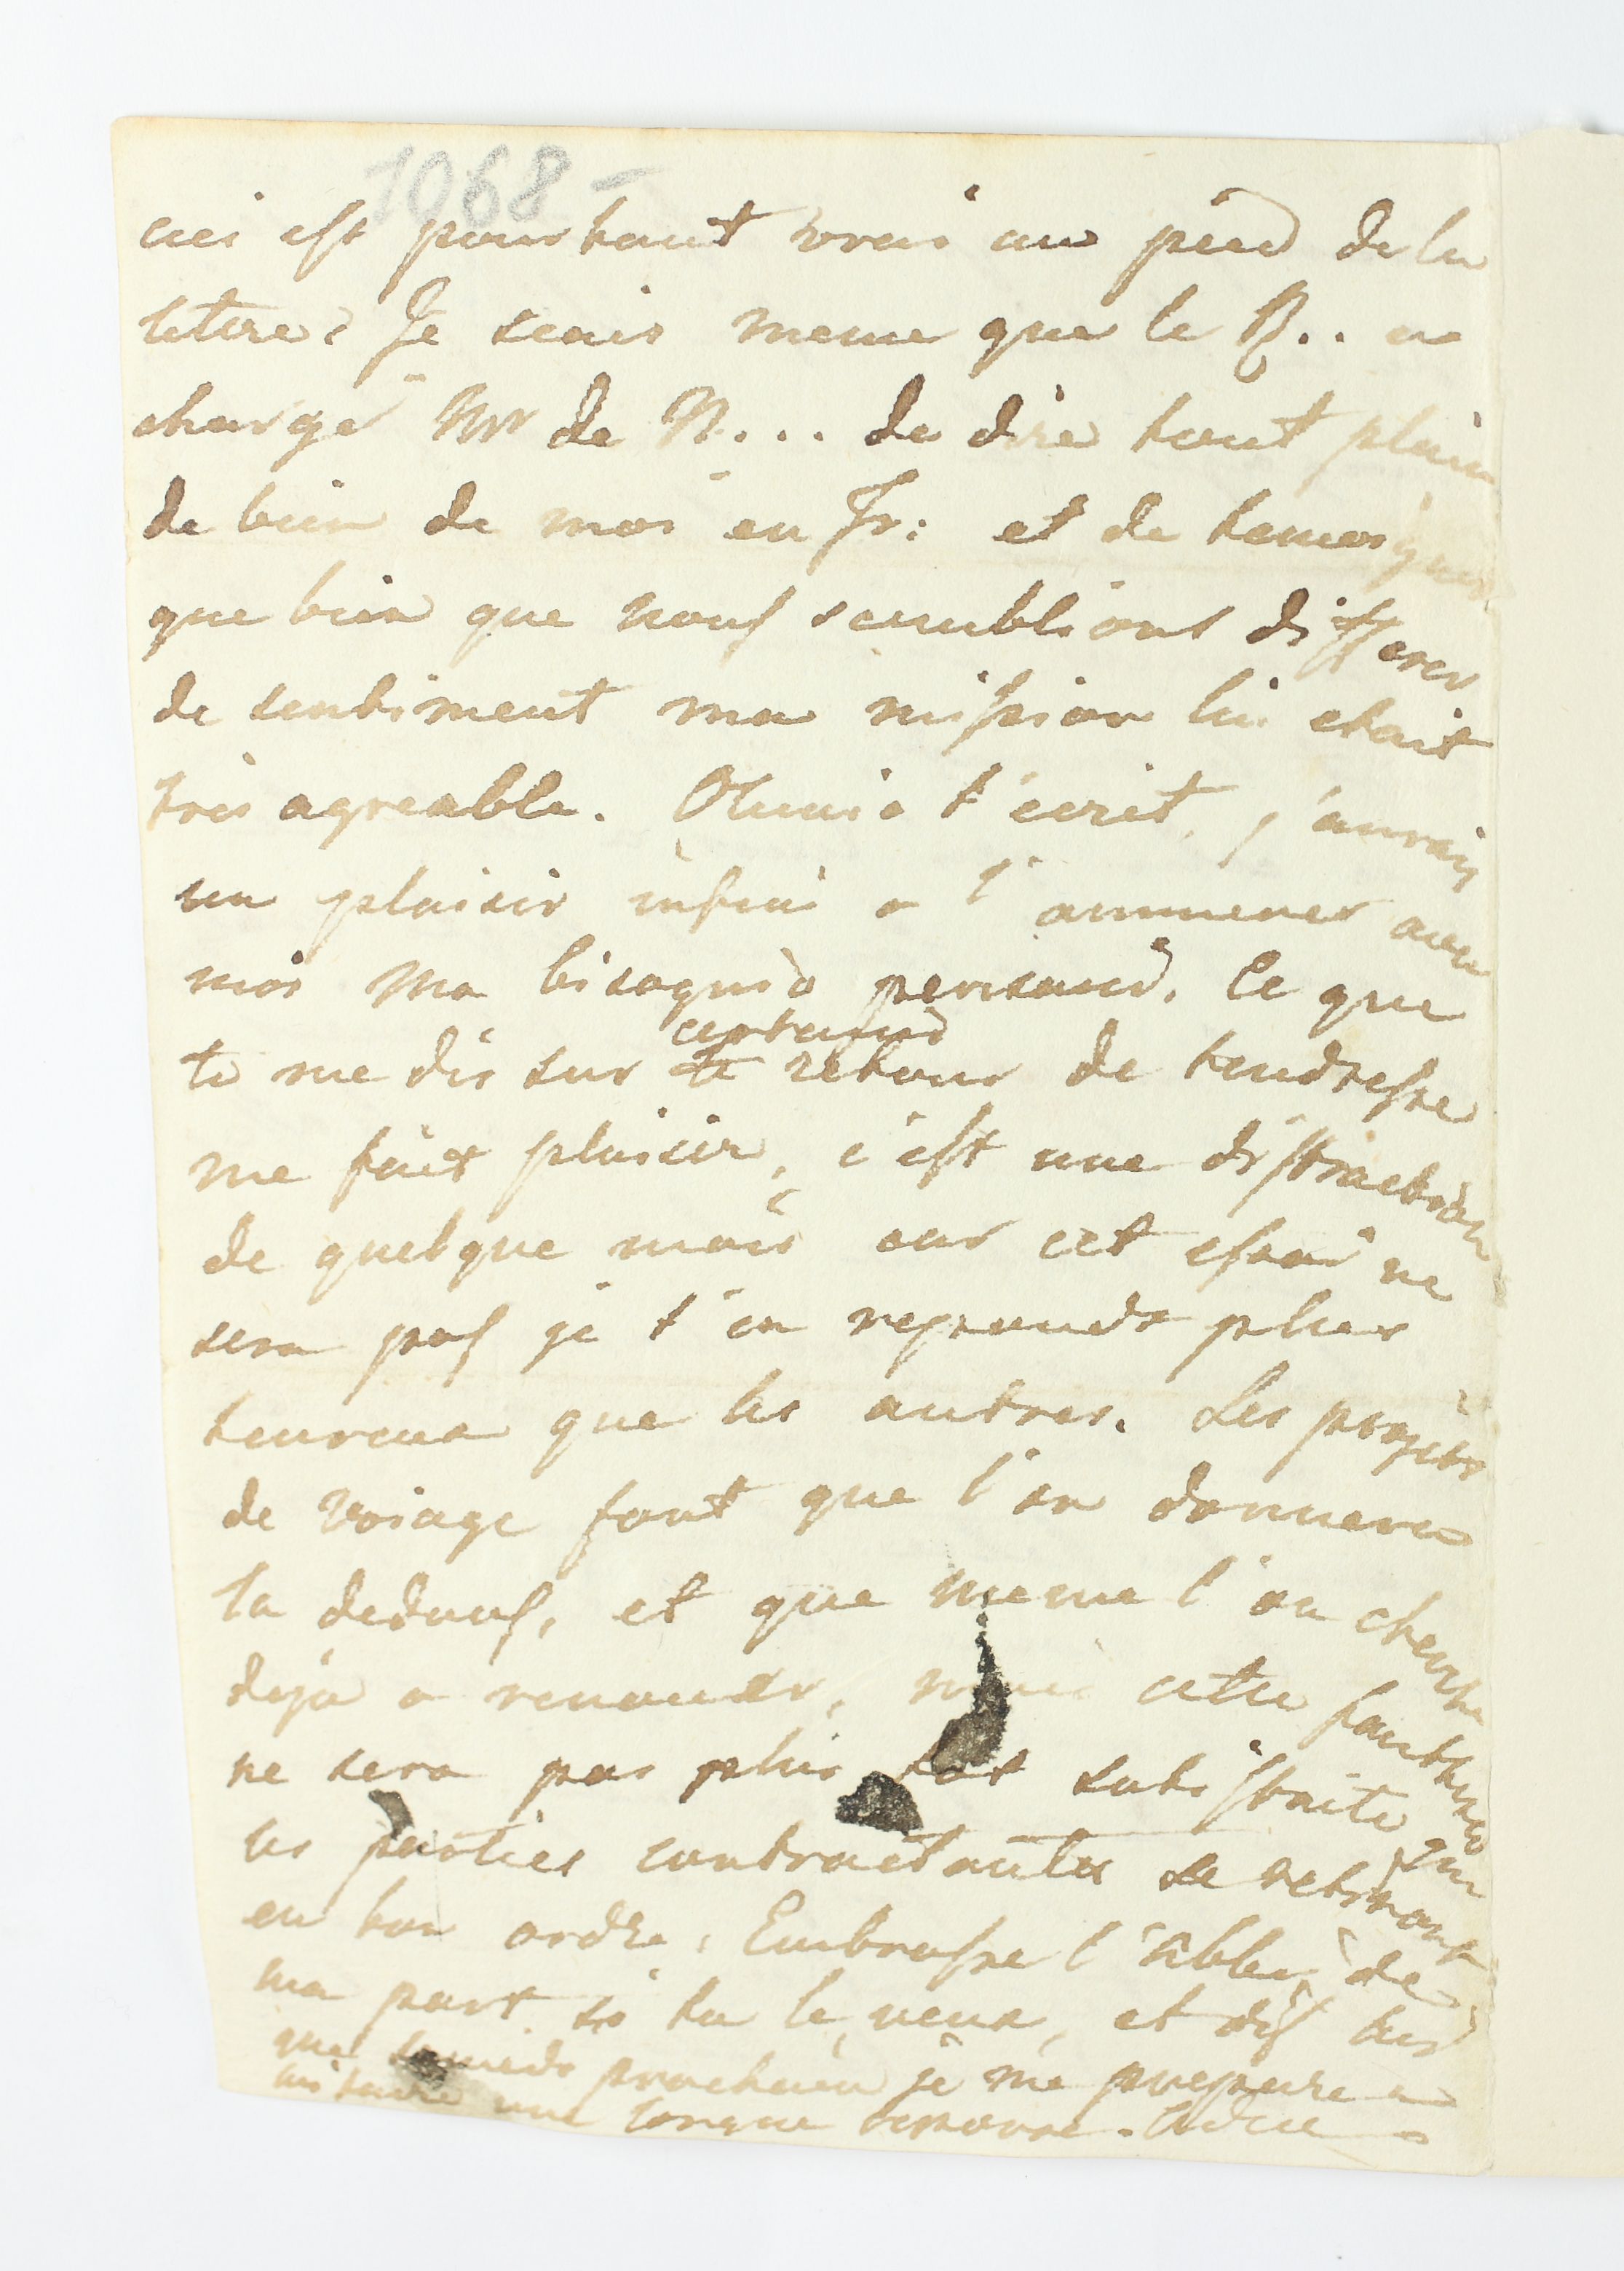 1068 -
ceci est pourtant vrai au pied de la
lettre. Je scais meme que le B.. a
chargé Mr de N.... de dire tout plein
de bien de moi en Fr: et de temoigner
que bien que nous semblions differer
de sentiment ma mission lui etait
très agreable. t'ecrit, j'aurais
un plaisir infini a l'ammener avec
moi ma Ce que
tu me dis sur certains retour de tendresse
me fait plaisir, c'est une distraction
de quelque mois car cet essai ne
sera pas je t'en reponds plus
heureux que les autres. Les projets
de voiage font que l'on donnera
la dedans, et que meme l'on cherche
deja a renouer, mais cette fantaisie
ne sera pas plus tot satisfaite que
les parties contractantes se retireront
en bon ordre. Embrasse l'Abbé de
ma part si tu le veux, et dis lui
que samedi prochain je me prepare a
lui faire une longue reponse. Adieu